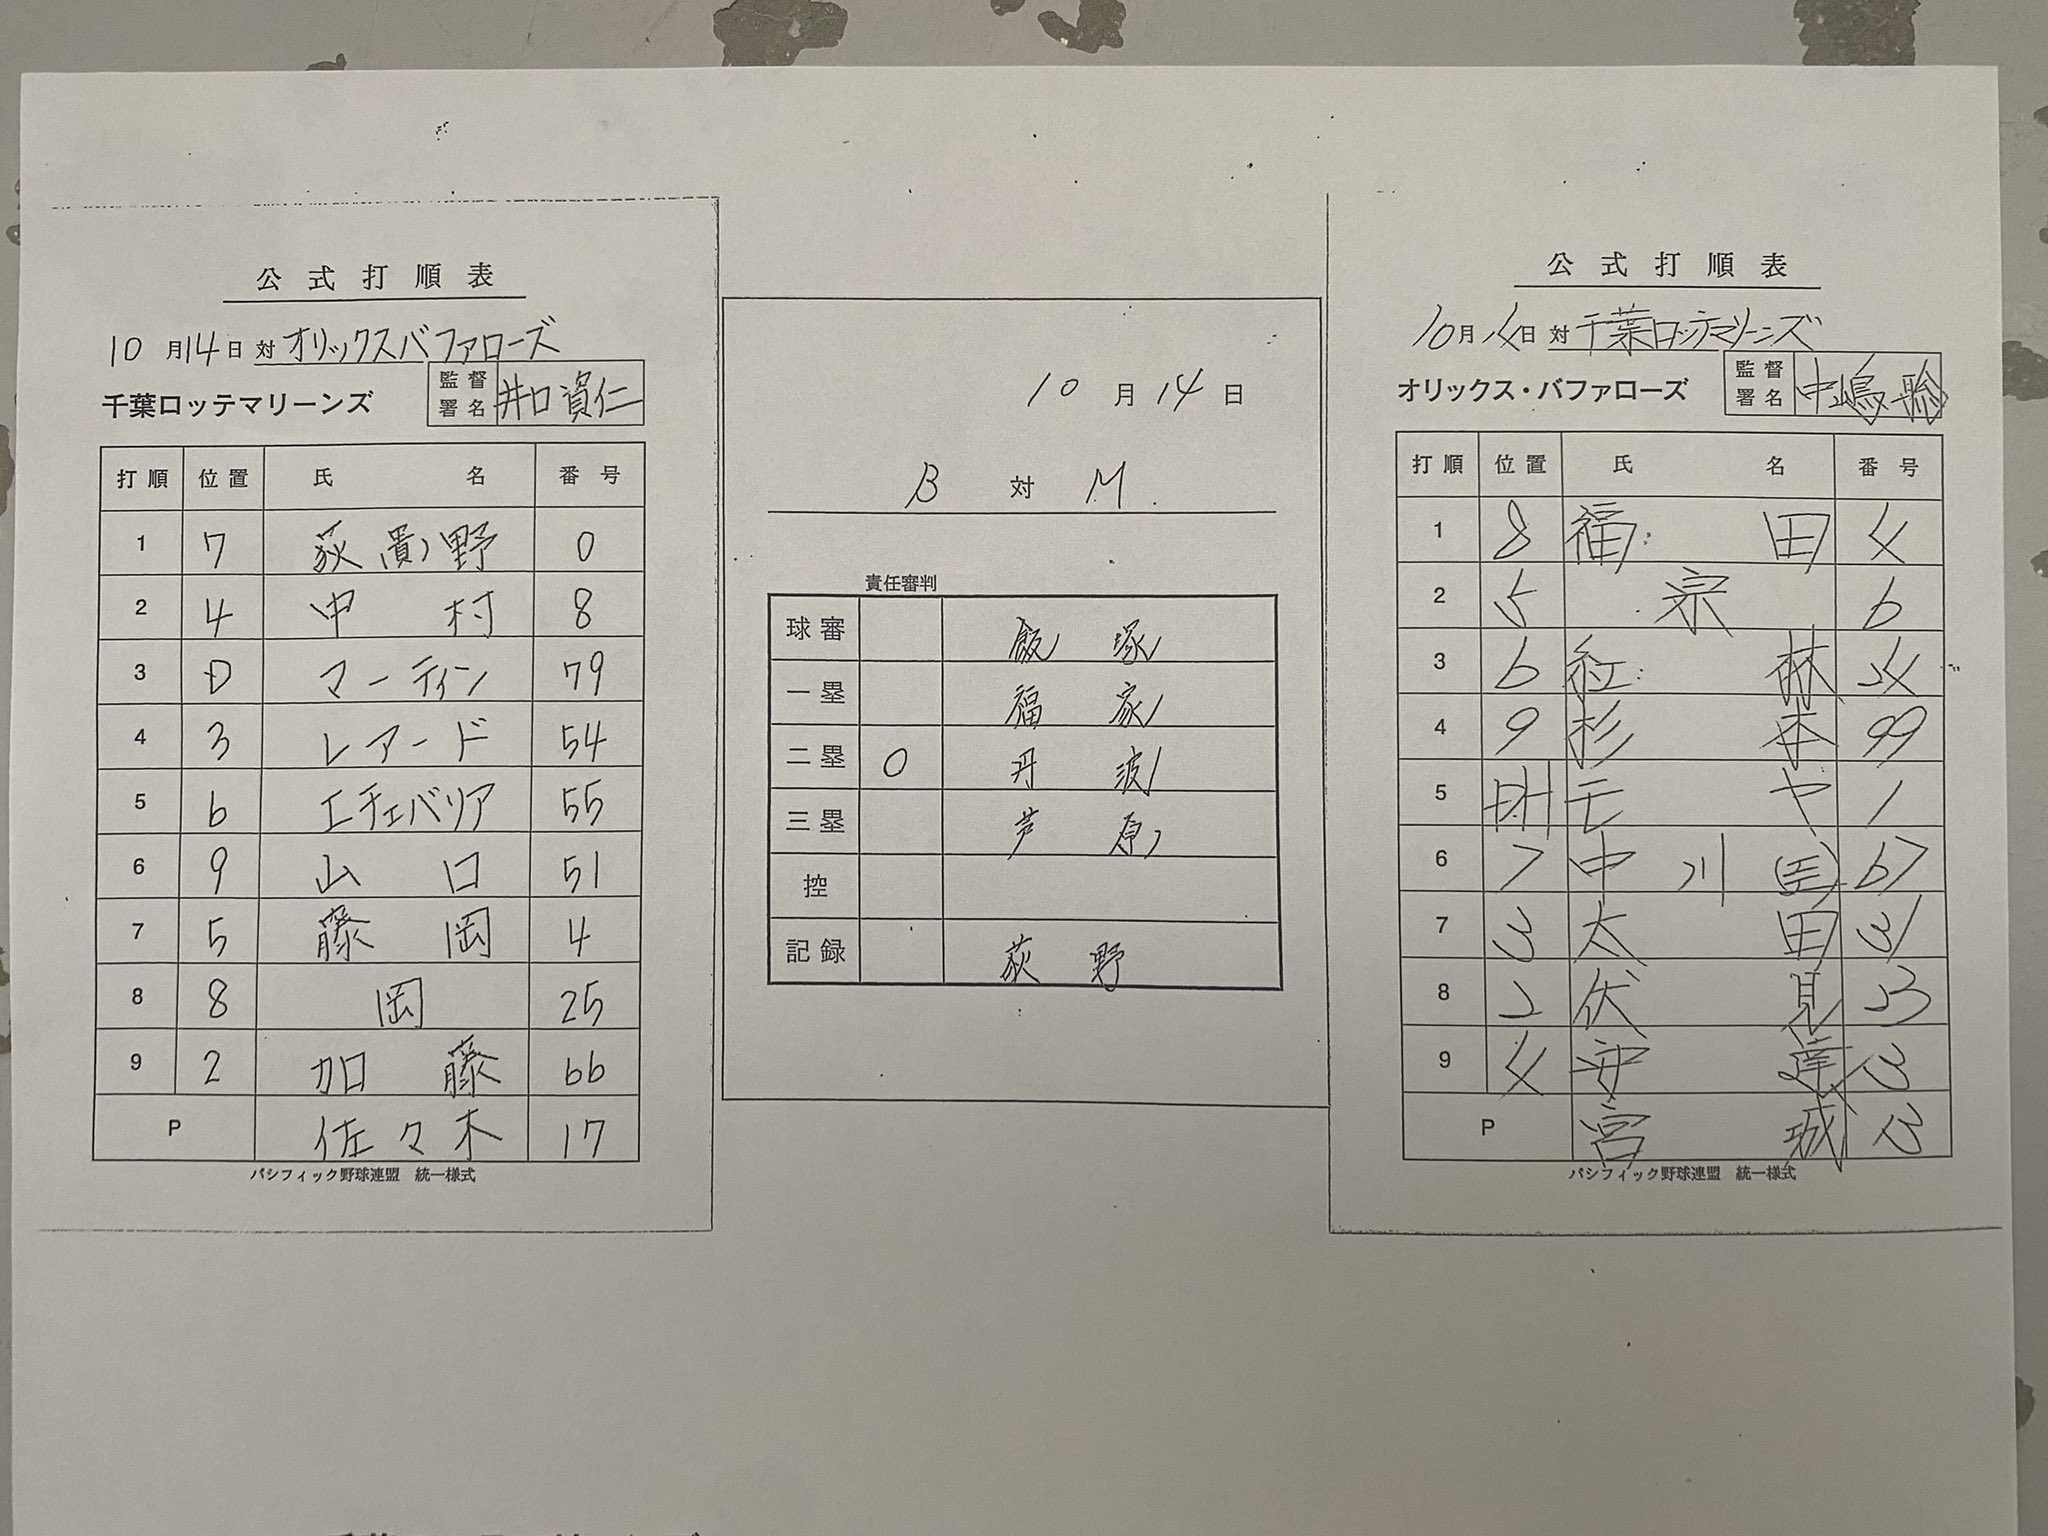 公式打順表
10月14日 対 オリックスバファローズ
千葉ロッテマリーンズ 監督署名 井口資仁
打順 位置 氏名 番号
1 7 荻(貴)野 0
2 4 中村 8
3 D マーティン 79
4 3 レアード 54
5 6 エチェバリア 55
6 9 山口 51
7 5 藤岡 4
8 8 岡 25
9 2 加藤 66
P 佐々木 17
パシフィック野球連盟 統一様式
10月14日
B 対 M
責任審判
球審 飯塚
一塁 福家
二塁 ○ 丹波
三塁 芦原
控
記録 荻野
公式打順表
10月14日 対 千葉ロッテマリーンズ
オリックス・バファローズ 監督署名 中嶋聡
打順 位置 氏名 番号
1 8 福田 4
2 5 宗 6
3 6 紅林 24
4 9 杉本 99
5 DH モヤ 1
6 7 中川(圭) 67
7 3 太田 31
8 2 伏見 23
9 4 安達 3
P 宮城 13
パシフィック野球連盟 統一様式